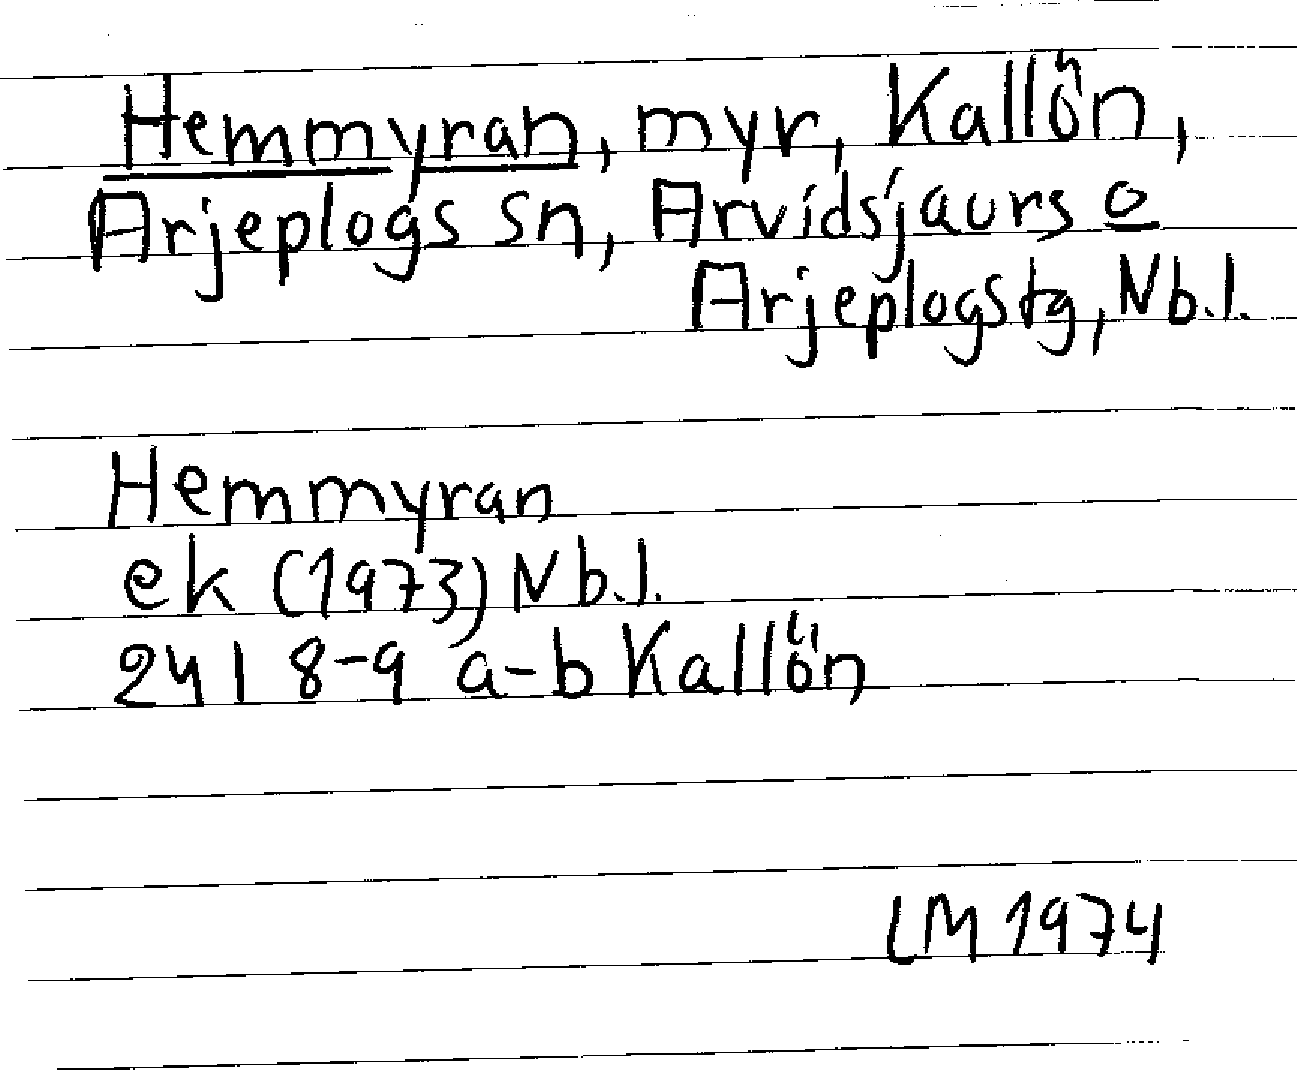 Hemmyran, myr, Kallön,
Arjeplogs sn, Arvidsjaurs o
Arjeplogstg, Nb.l.
Hemmyran
ek (1973) Nb.l.
241 8-9 a-b Kallön
LM 1974